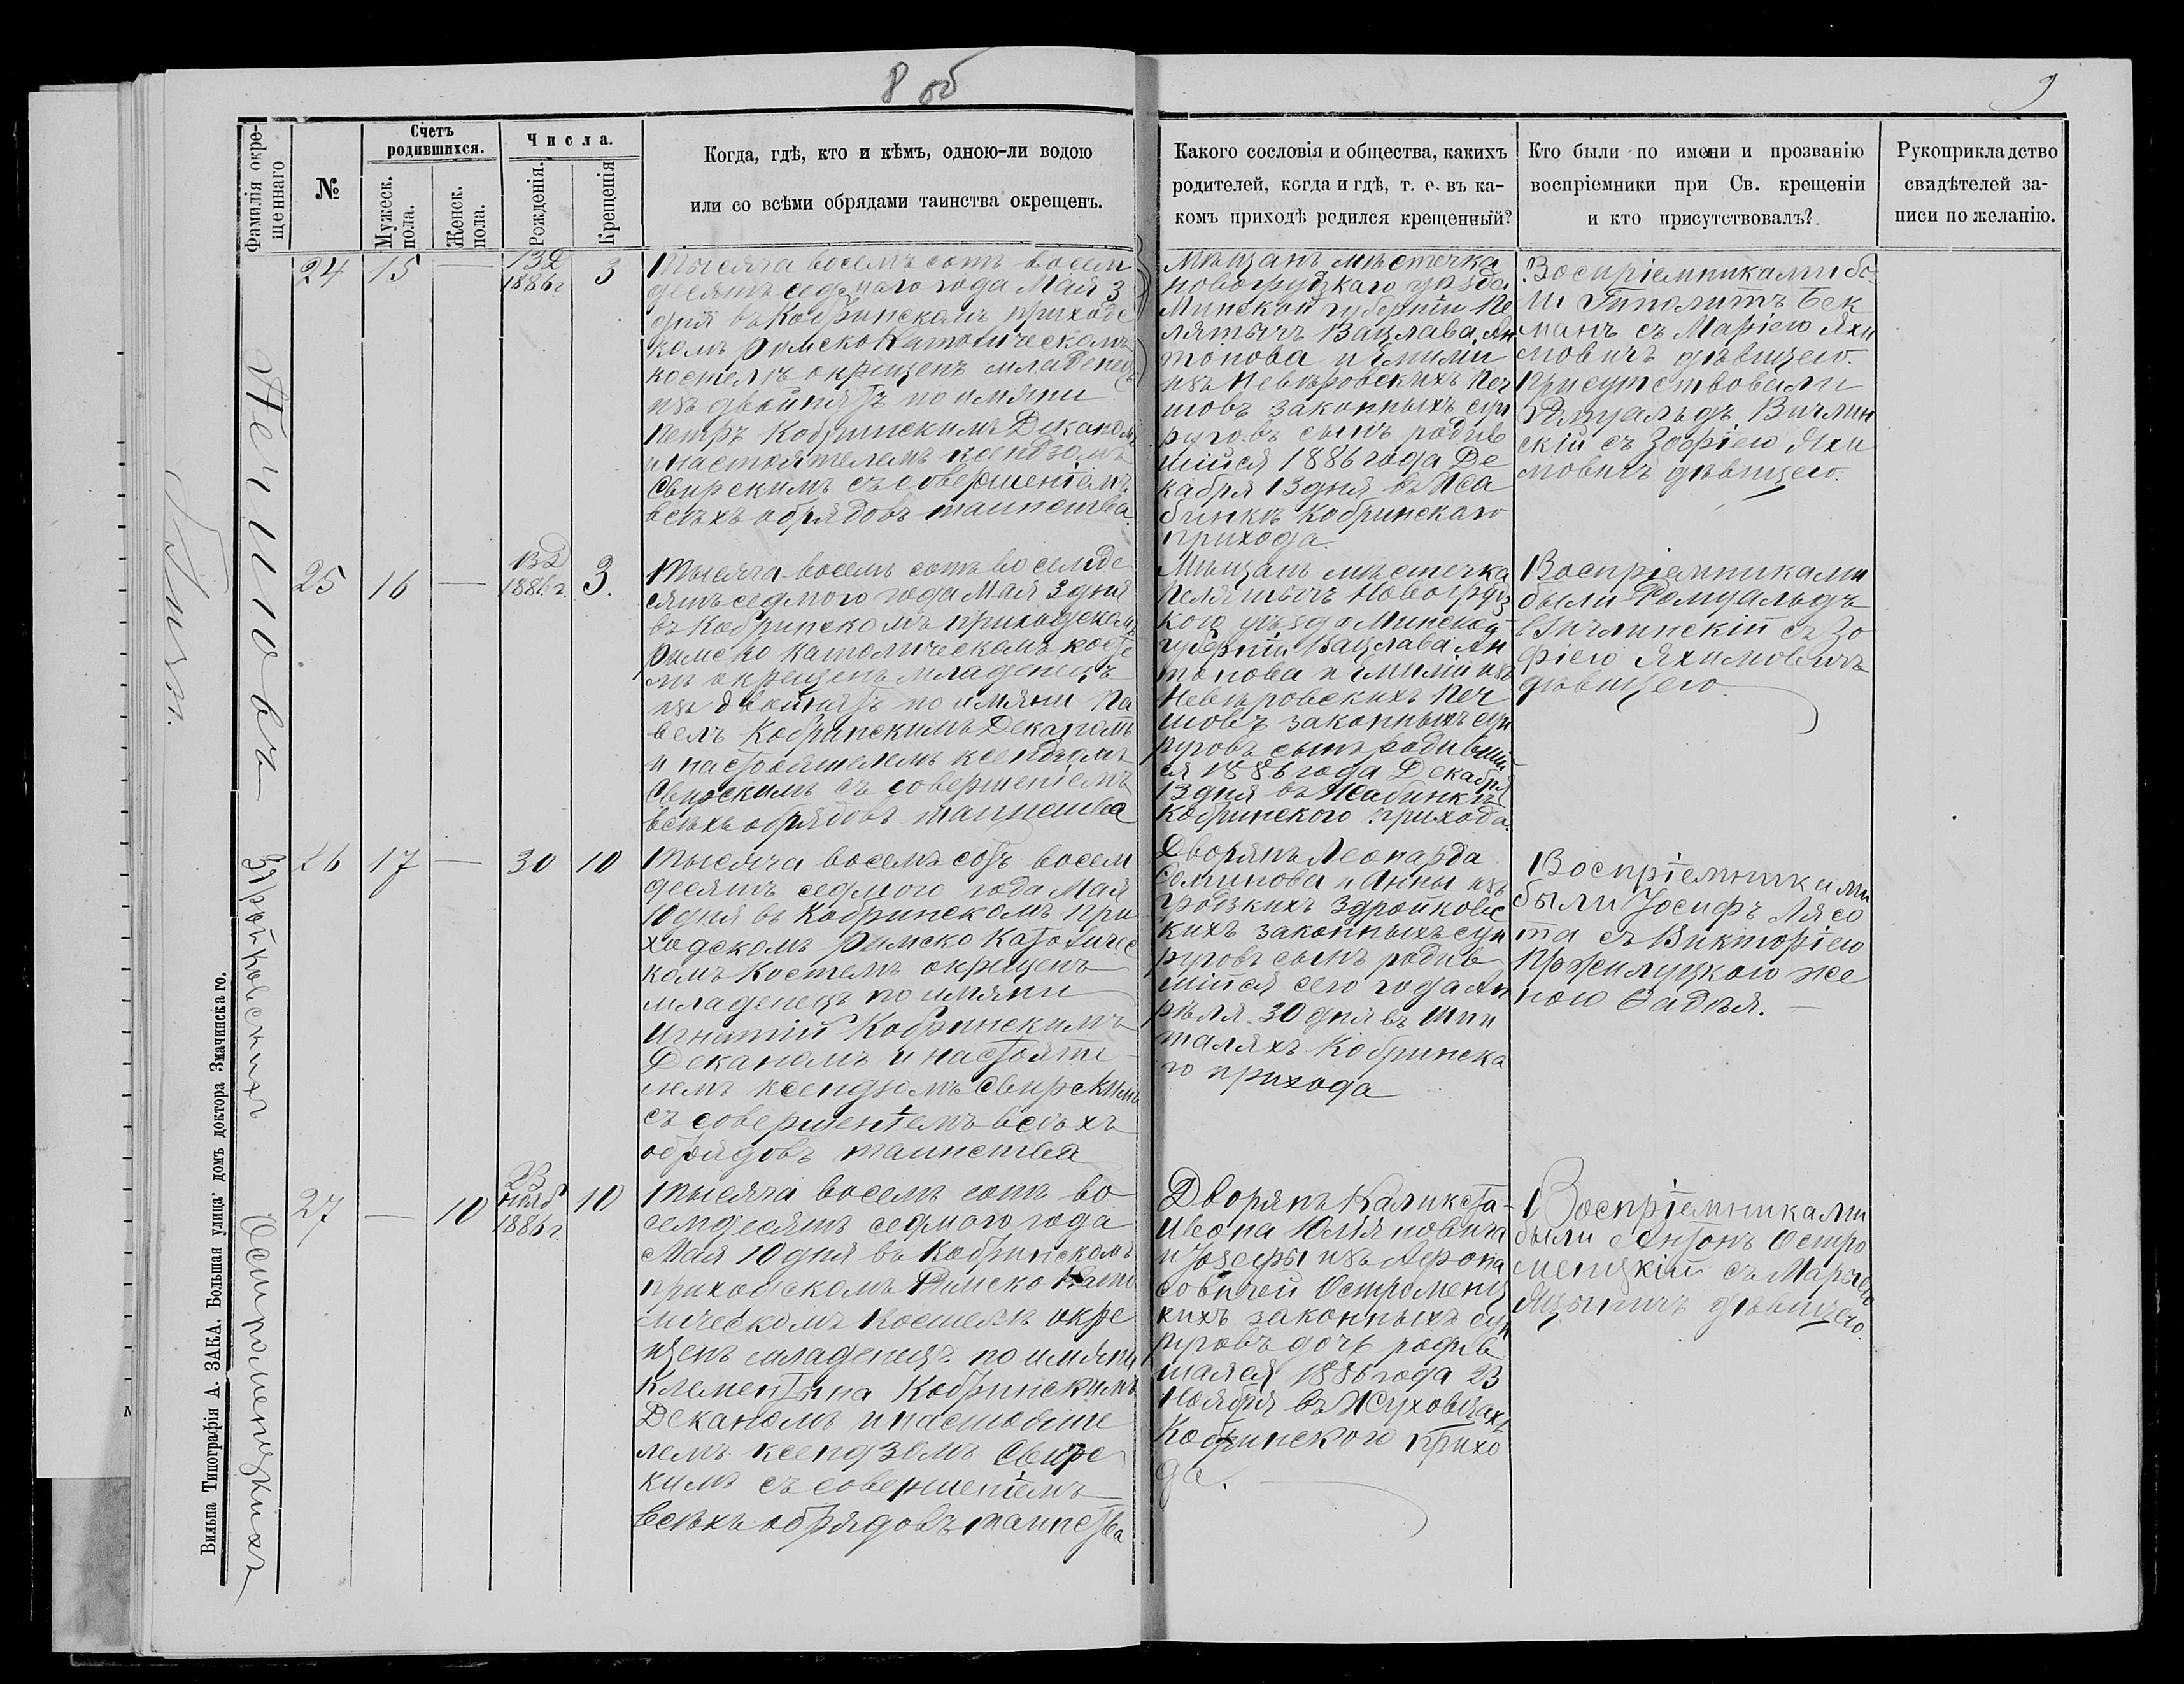 8 об
9
Фамилія окре-
щеннаго
№
Счетъ
родившихся.
Мужеск.
пола.
Женск.
пола.
Числа.
Рожденія.
Крещенія
Когда, гдѣ, кто и кѣмъ, одною-ли водою
или со всѣми обрядами таинства окрещенъ.
Какого сословія и общества, какихъ
родителей, когда и гдѣ, т. е. въ ка-
комъ приходѣ родился крещенный?
Кто были по имени и прозванію
воспріемники при Св. крещеніи
и кто присутствовалъ?
Рукоприкладство
свидѣтелей за-
писи по желанію.
Печшова
24
15
—
13 Д
1886 г.
3
Тысяча восемъ сотъ восем
десятъ седмаго года Мая 3
дня въ Кобринскомъ приходс
комъ Римско Католическомъ
костелѣ окрещенъ младенецъ
изъ двойнятъ по имяни
Петръ Кобринскимъ Деканомъ
и настоятелемъ ксендзомъ
Свирскимъ съ совершеніемъ
всѣхъ обрядовъ таинства.
Мѣщанъ мѣстечка
Новогрудзкаго уѣзда
Минской губерніи Пе
лятычъ Вацлава Ан
тонова и Эмиліи
изъ Невѣровскихъ Печ
шовъ законныхъ суп
руговъ сынъ родив
шійся 1886 года Де
кабря 13 дня въ Жа
бинкѣ Кобринскаго
прихода.
Воспріемниками бы
ли Гиполитъ Бек
манъ съ Маріею Яхи
мовичъ дѣвицею.
Присутствовали
Ромуальдъ Вичлин
скій съ Зофіею Яхи
мовичъ дѣвицею.
25
16
—
13 Д
1886 г.
3.
Тысяча восемъ сотъ восемде
сятъ седмого года Мая 3 дня
въ Кобринскомъ приходскомъ
Римско католическомъ косте
лѣ окрещенъ младенецъ
изъ двойнятъ по имяни Па
велъ Кобринскимъ Деканомъ
и настоятелемъ ксендзомъ
Свирскимъ съ совершеніемъ
всѣхъ обрядовъ таинства
Мѣщанъ мѣстечка
Пелятычъ Новогрудз
кого уѣзда Минской
губерніи Вацлава Ан
тонова и Эмиліи изъ
Невѣровскихъ Печ
шовъ законныхъ суп
руговъ сынъ родивший
ся 1886 года Декабря
13 дня въ Жабинкѣ
Кобринского прихода.
Воспріемниками
были Ромуальдъ
Вичлинскій съ Зо
фіею Яхимовичъ
дѣвицею.
Здройковскихъ
26
17
—
30
10
Тысяча восемъ сотъ восем
десятъ седмого года Мая
10 дня въ Кобринскомъ при
ходскомъ Римско Католичес
комъ Костелѣ окрещенъ
младенецъ по имяни
Игнатій Кобринскимъ
Деканомъ и настояте
лемъ ксендзомъ Свирскимъ
съ совершеніемъ всѣхъ
обрядовъ таинства
Дворянъ Леонарда
и Анны изъ
Гродзкихъ Здройковс
кихъ законныхъ суп
руговъ сынъ родив
шійся сего года Ап
рѣля 30 дня въ Шпи
таляхъ Кобринска
го прихода
Воспріемниками
были Іосифъ Лясо
та съ Викторіею
Пржилуцкою же
ною
Остроменцкихъ
27
—
10
23
нояб
1886 г.
10
Тысяча восемъ сотъ во
семдесятъ седмого года
Мая 10 дня въ Кобринскомъ
приходскомъ Римско Като
лическомъ Костелѣ окре
щенъ младенецъ по имяни
Клементына Кобринскимъ
Деканомъ и настояте
лемъ ксендзомъ Свирс
кимъ съ совершеніемъ
всѣхъ обрядовъ таинства
Дворянъ Каликста
Ивона Юліяновича
и Юзефы изъ Афана
совичей Остроменц
кихъ законныхъ суп
руговъ дочь родив
шаяся 1886 года 23
Ноября въ Жуховцахъ
Кобринского прихо
да.
Воспріемниками
были Антонъ Остро
менцкій съ Марыею
Яцыничъ дѣвицею.
Вильна Типографія А. ЗАКА. Большая улица домъ доктора Змачинскаго.